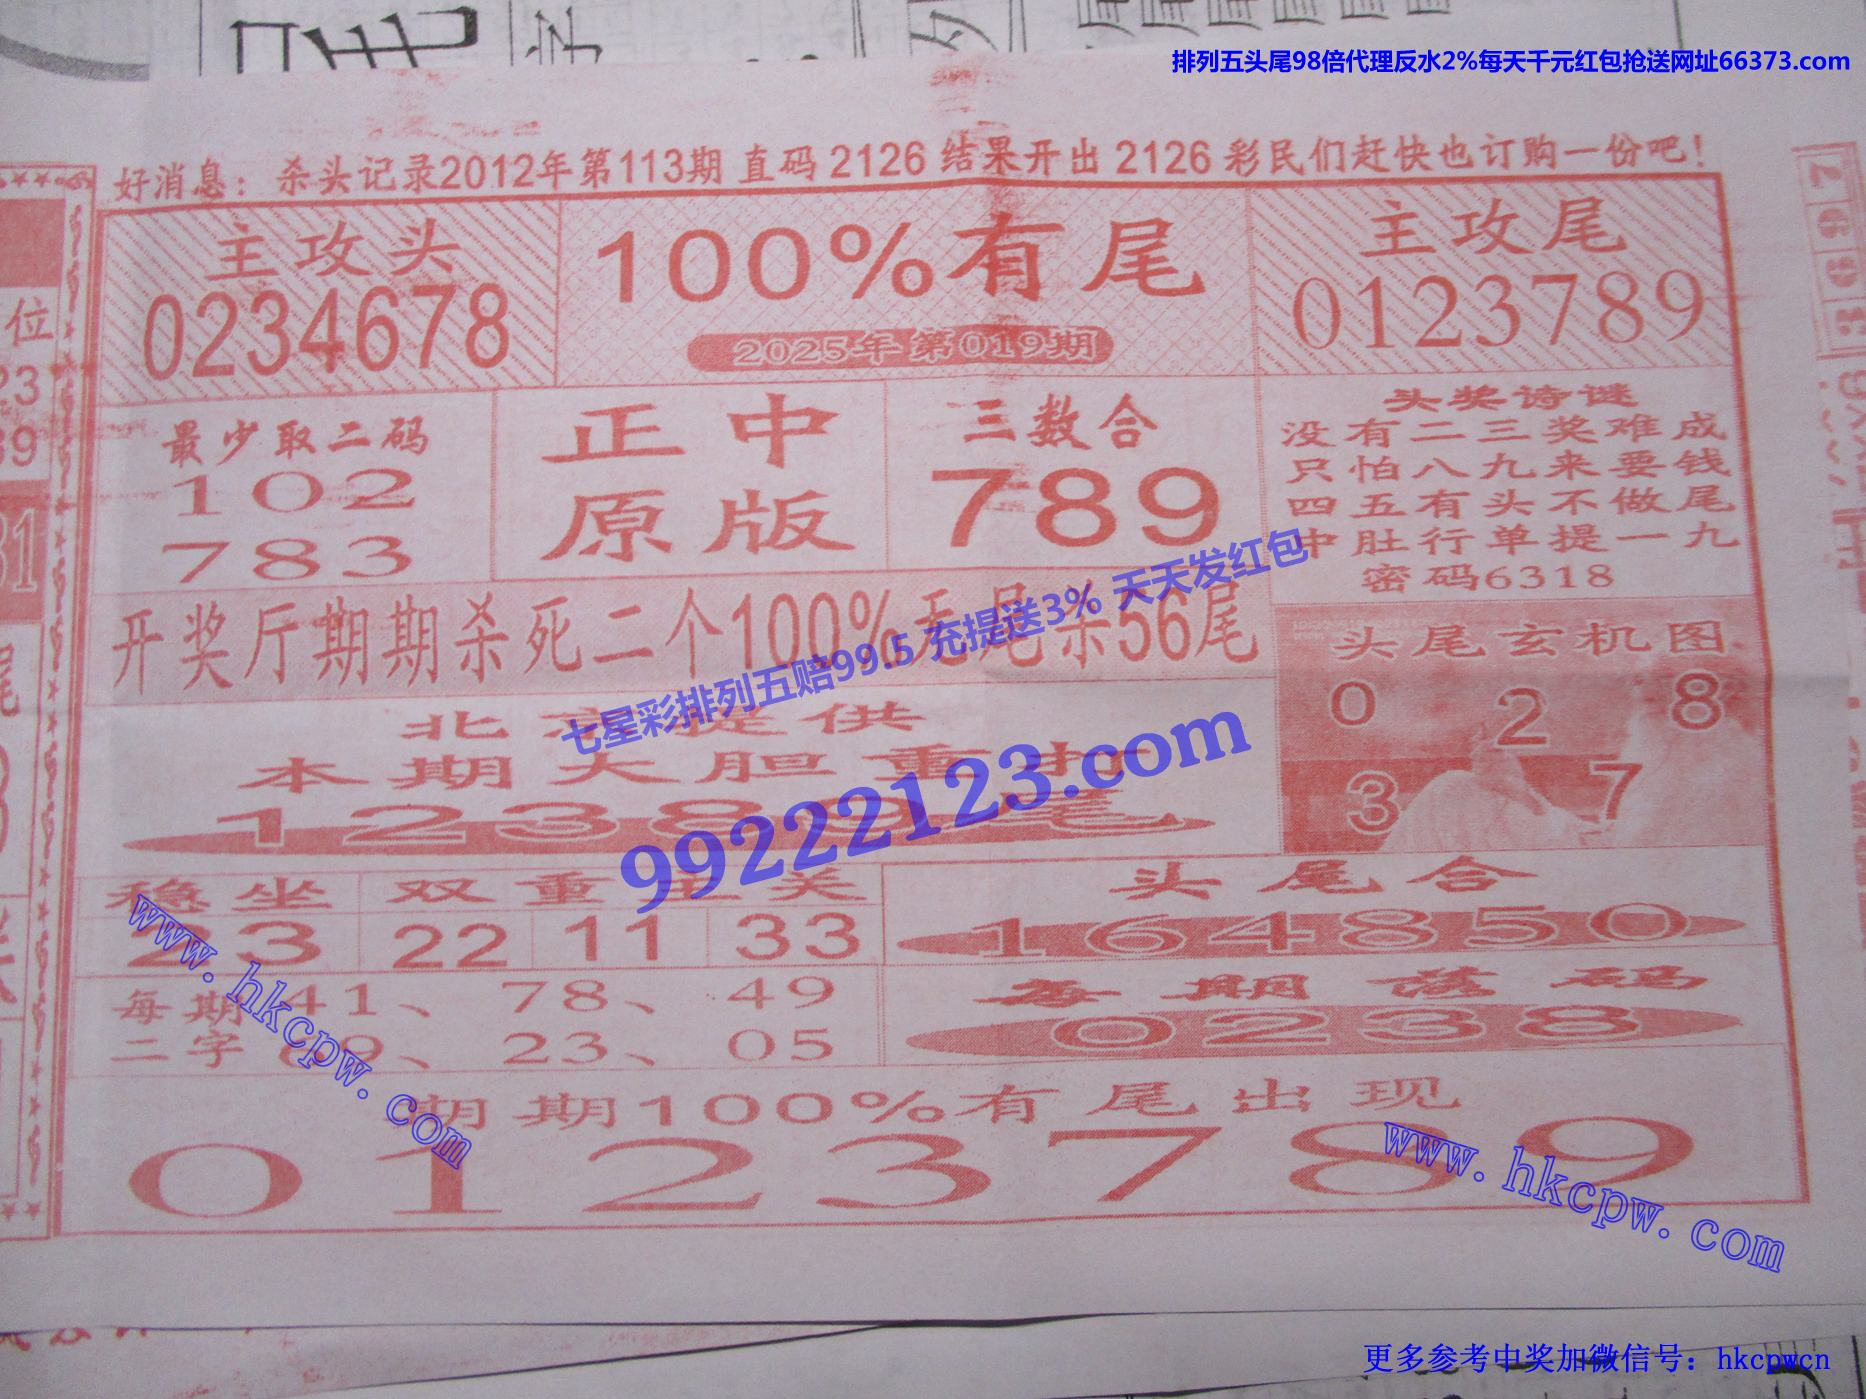 排列五头尾98倍代理反水2%每天千元红包抢送网址66373.com
好消息：杀头记录2012年第113期 直码 2126 结果开出 2126 彩民们赶快也订购一份吧！
主攻头
0234678
100%有尾
2025年第019期
主攻尾
0123789
最少取二码
102
783
正中
原版
三数合
789
头奖诗谜
没有二三奖难成
只怕八九来要钱
四五有头不做尾
中肚行单提一九
密码6318
开奖厅期期杀死二个100%无尾杀56尾
头尾玄机图
0 2 8
3 7
七星彩排列五赔99.5 充提送3% 天天发红包
99222123.com
北京提供
本期大胆重扣
12389尾
稳坐
23
双重
22 11 33
头尾合
164850
每期
二字
41、78、49
89、23、05
每期落码
0238
期期100%有尾出现
0123789
www.hkcpw.com
www.hkcpw.com
更多参考中奖加微信号：hkcpwcn
位
23
39
31
尾